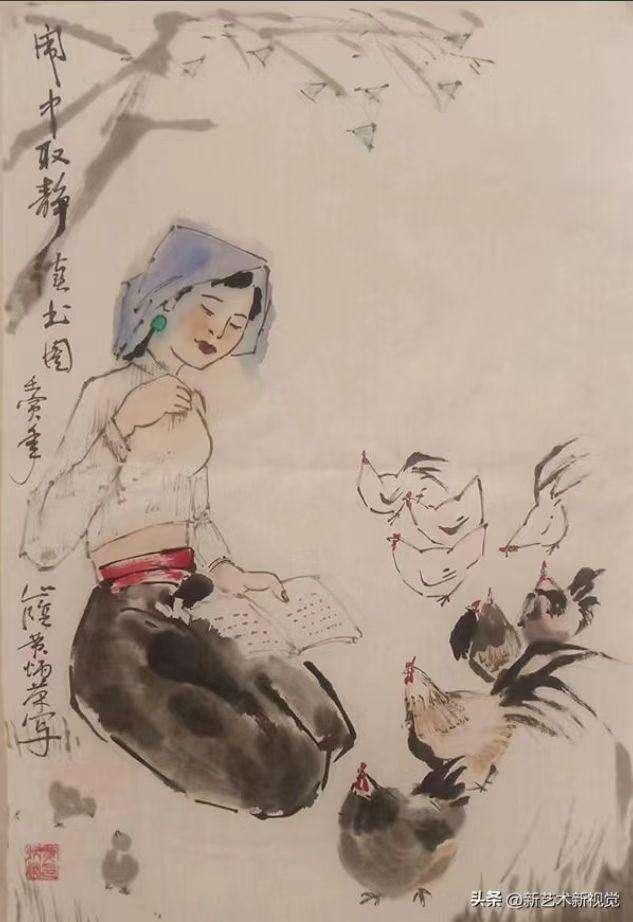 闹中取静读书图壬寅年
黄炳荣写
头条 @新艺术新视觉